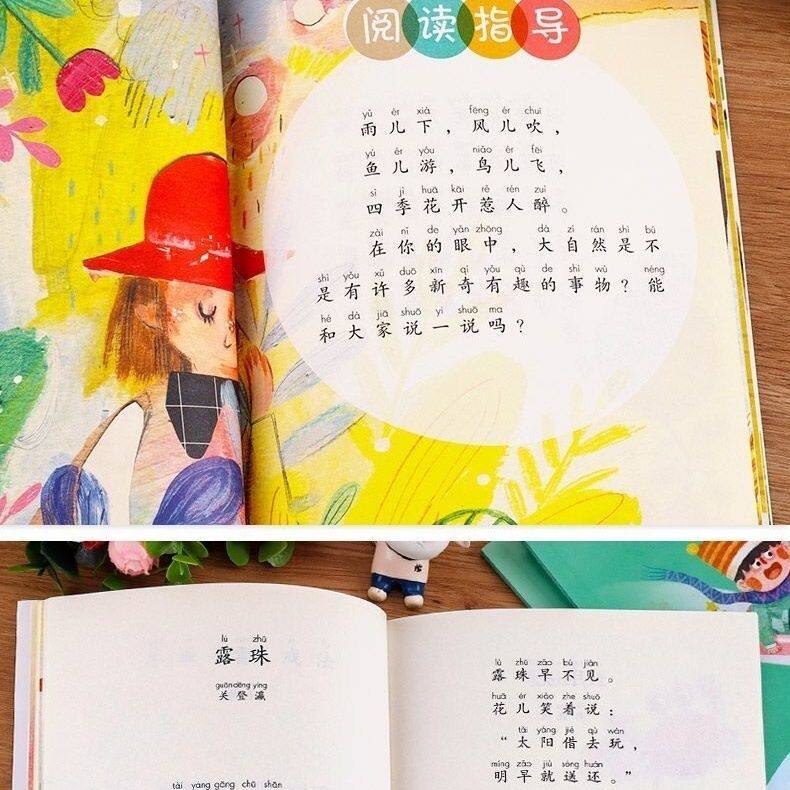 阅读指导
yǔ ér xià fēng ér chuī
雨儿下，风儿吹，
yú ér yóu niǎo ér fēi
鱼儿游，鸟儿飞，
sì jì huā kāi rě rén zuì
四季花开惹人醉。
zài nǐ de yǎn zhōng dà zì rán shì bù
在你的眼中，大自然是不
shì yǒu xǔ duō xīn qí yǒu qù de shì wù néng
是有许多新奇有趣的事物？能
hé dà jiā shuō yi shuō ma
和大家说一说吗？
lù zhū
露珠
guān dēng yíng
关登瀛
tài yáng gāng chū shān
lù zhū zǎo bú jiàn
露珠早不见。
huā ér xiào zhe shuō
花儿笑着说：
tài yáng jiè qù wán
“太阳借去玩，
míng zǎo jiù sòng huán
明早就送还。”